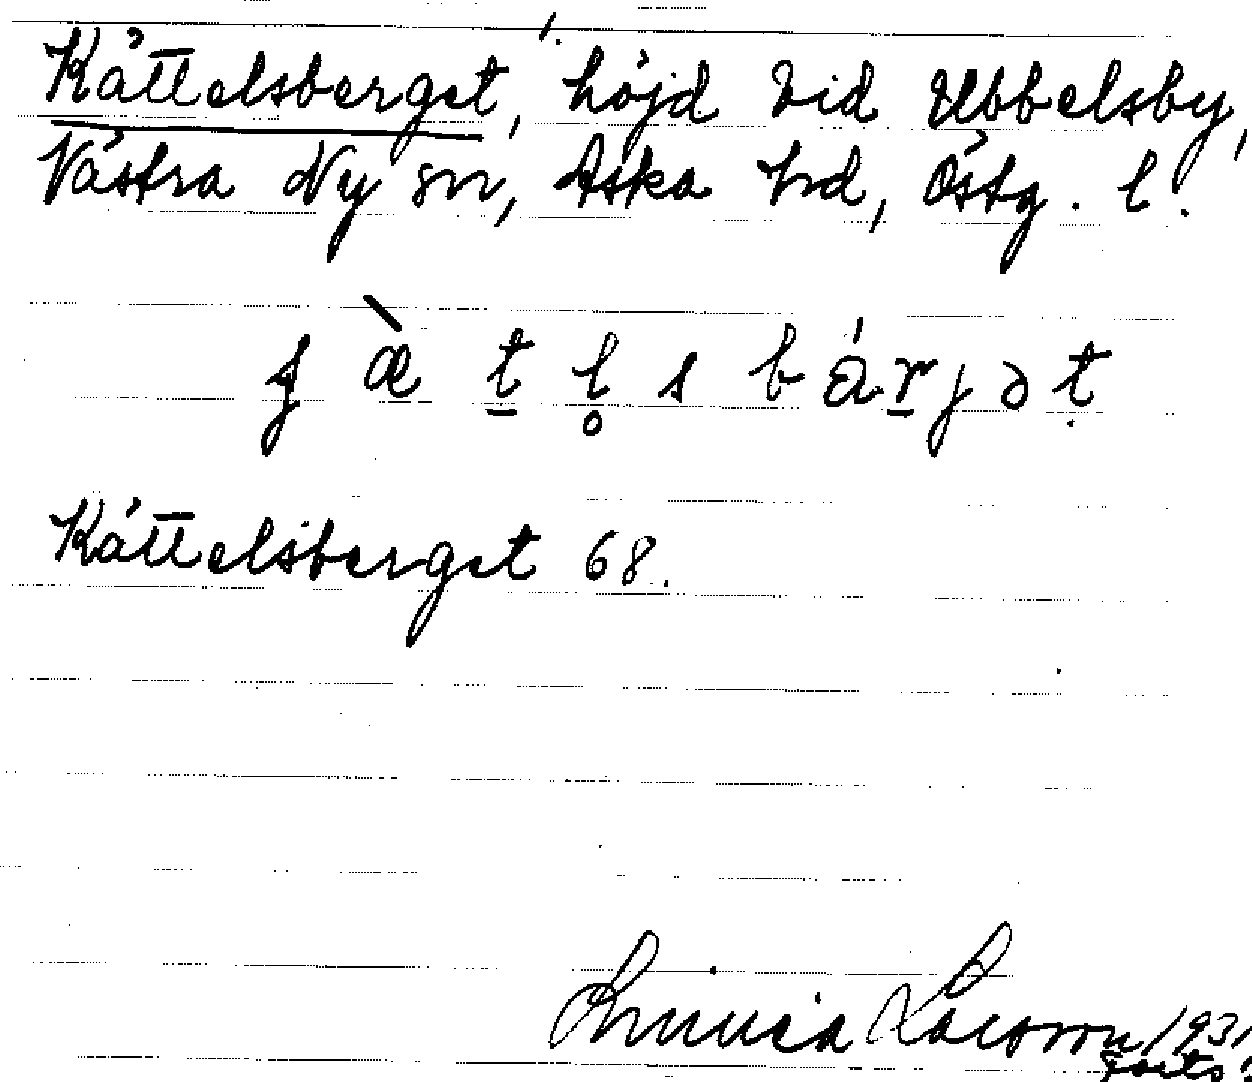 1.
Kättelsberget, höjd vid Ubbelsby,
Västra Ny sn, Aska hd, Östg. l.
Kättelsberget 68.
Larsson 1931
Forts.